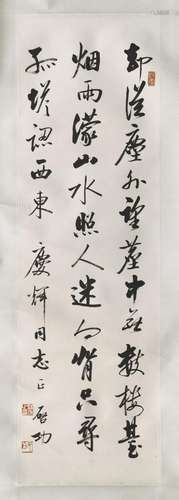 却從塵外望塵中無數樓臺
烟雨濛山水照人迷向背只尋
孤塔認西東 慶輝同志正 啟功